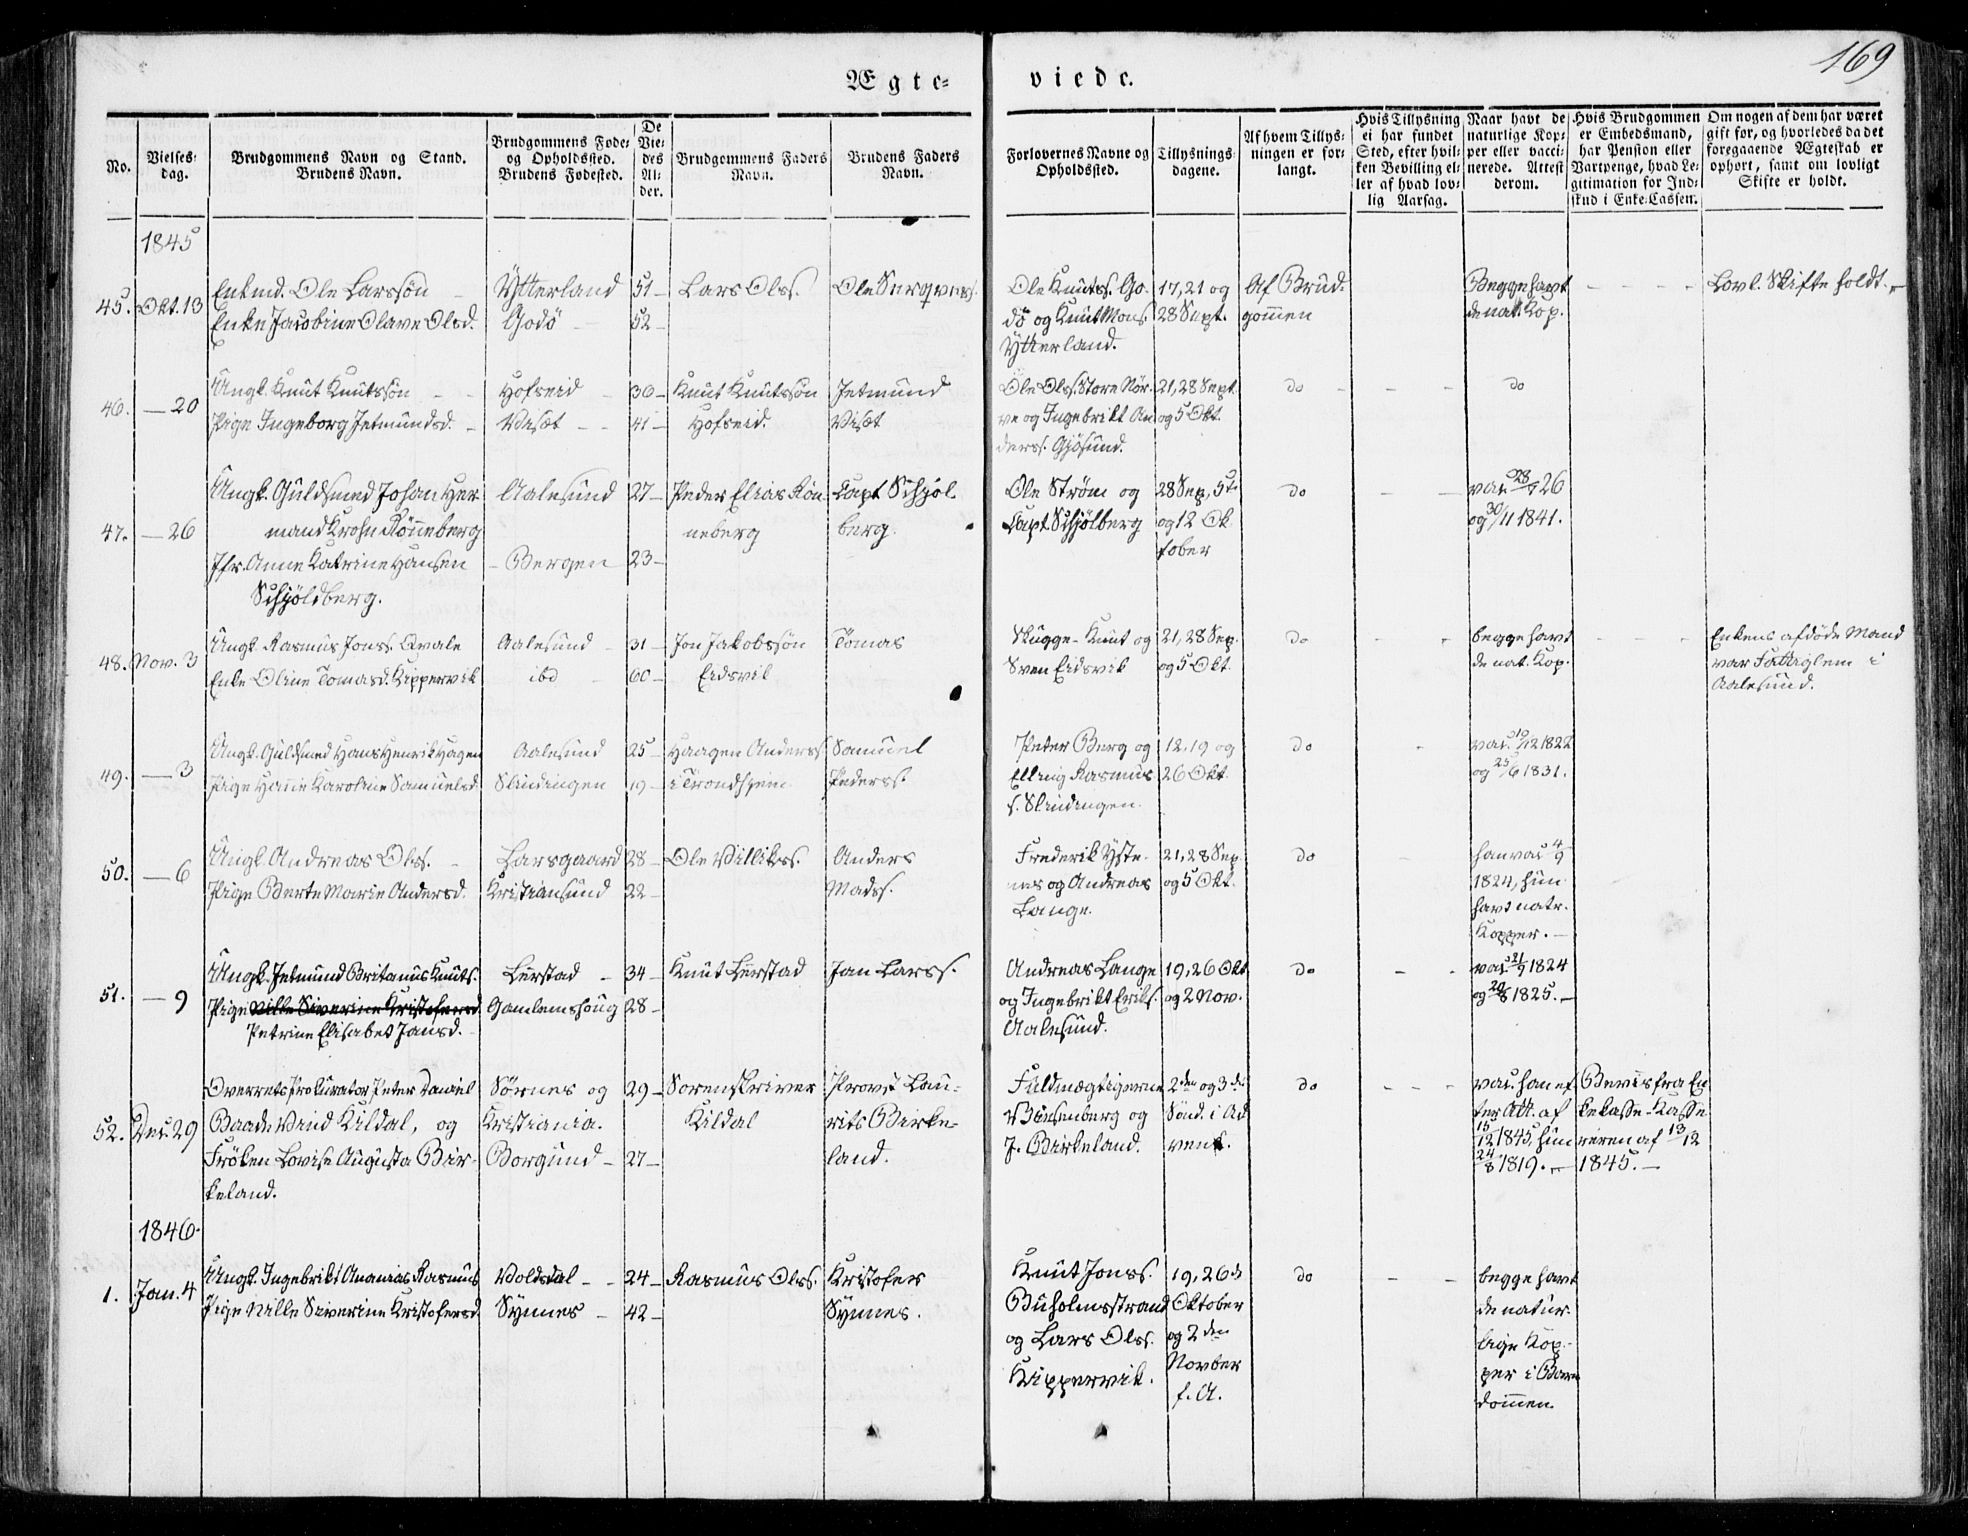 169
Ægte-
viede.
No.
Vielses-
dag.
Brudgommens Navn og Stand.
Brudens Navn.
Brudgommens Føde-
og Opholdssted.
Brudens Fødested.
De
Vie-
des
Al-
der.
Brudgommens Faders
Navn.
Brudens Faders
Navn.
Forlovernes Navne og
Opholdssted.
Tillysnings-
dagene.
Af hvem Tillys-
ningen er for-
langt.
Hvis Tillysning
ei har fundet
Sted, efter hvil-
ken Bevilling el-
ler af hvad lov-
lig Aarsag.
Naar havt de
naturlige Kop-
per eller vacci-
nerede. Attest
derom.
Hvis Brudgommen
er Embedsmand,
har Pension eller
Vartpenge, hvad Le-
gitimation for Ind-
skud i Enke-Cassen.
Om nogen af dem har været
gift før, og hvorledes da det
foregaaende Ægteskab er
ophørt, samt om lovligt
Skifte er holdt.
1845
45. Okt. 13
Enkmd. Ole Larssøn
Enke Jacobine Olave Olsd.
Ytterland
Godø
51
52
Lars Olss.
Ole
Ole Knuts. Go-
dø og Knut Mons.
Ytterland.
17, 21 og
28 Sept.
Af Brud-
gommen
Begge havt
de nat. Kop.
Lovl. Skifte holdt.
46. — 20
Ungk. Knut Knutssøn
Pige Ingeborg Jetmundsd.
Hofseid
Viset
30
41
Knut Knutssøn
Hofseid.
Jetmund
Viset
Ole Olss. Store Nør-
ve og Ingebrikt An
derss. Gjøsund.
21, 28 Sept.
og 5 Okt.
do
do
47. — 26
Ungk. Guldsmed Johan Her
mand Krohn Rønneberg
Jfr. Anne Katrine Hansen
Schjøldberg.
Aalesund
Bergen
27
23
Peder Elias Røn
neberg
Capt. Schjøl
berg.
Ole Strøm og
Capt. Schjølberg
28 Sep, 5te
og 12 Ok
tober
do
vac. 28/7 26
og 30/11 1841.
48. Nov. 3
Ungk. Rasmus Jonss. Qvale
Enke Oline Tomasd. Kippervik
Aalesund
ibd
31
60
Jon Jakobssøn
Eidsvik
Tomas
Skugge-Knut og
Sven Eidsvik
21, 28 Sep.
og 5 Okt.
do
begge havt
de nat. Kop.
Enkens afdøde Mand
var Fattiglem i
Aalesund.
49. — 3
Ungk. Guldsmed Hans Henrik Hagen
Pige Hanne Karoline Samuelsd.
Aalesund
Slindingen
25
19
Haagen Anderss.
i Trondhjem.
Samuel
Pederss.
Peter Berg og
Elling Rasmus
s. Slindingen.
12, 19 og
26 Okt.
do
vac. 19/12 1822
og 25/6 1831.
50. — 6
Ungk. Andreas Olss.
Pige Berte Marie Andersd.
Larsgaard
Kristiansund
28
22
Ole Villikss.
Anders
Madss.
Frederik Yste-
nes og Andreas
Lange.
21, 28 Sep.
og 5 Okt.
do
han vac. 4/9
1824, hun
havt natr.
Kopper.
51. — 9
Ungk. Jetmund Britanus Knuts.
Pige Nille Siverine Kristofersd
Petrine Elisabet Jansd.
Lerstad
Gamlemshoug
34
28
Knut Lerstad
Jan Larss.
Andreas Lange
og Ingebrikt Eriks.
Aalesund.
19, 26 Okt
og 2 Nov.
do
vac. 21/9 1824
og 20/8 1825.
52. Dec. 29
Overretsprokurator Peter Daniel
Baade Wind Kildal, og
Frøken Lovise Augusta Bir-
keland.
Sørnes og
Kristiania.
Borgund
29
27
Sorenskriver
Kildal
Provst Lau-
rits Birke-
land.
Fuldmægtigerne
og
J. Birkeland.
2den og 3die
Sønd. i Ad
vent.
do
vac. han ef-
ter Att. af
15/12 1845, hun
24/8 1819.
Bevis fra En
kekasse-Kasse
reren af 13/12
1845.
1846.
1. Jan. 4
Ungk. Ingebrikt Ananias Rasmus
Pige Nille Siverine Kristofersd.
Voldsdal
Synnes
24
42
Rasmus Olss.
Kristofer
Synnes.
Knut Jonss.
Buholmsstrand
og Lars Olss.
Kippervik.
19, 26de
Oktober
og 2den
Novber
f. A.
do
begge havt
de natur-
lige Kop-
per i Barn
dommen.